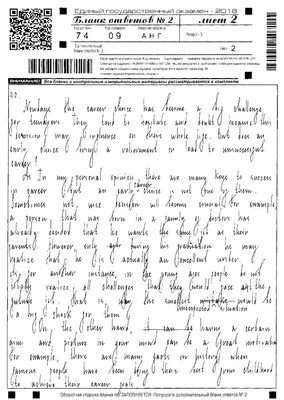 Единый государственный экзамен - 2018
Бланк ответов № 2
лист 2
74
09
АНГ
Резерв - 5
Дополнительный
бланк ответов № 2
Лист 2
ВНИМАНИЕ!
Все бланки и контрольные измерительные материалы рассматриваются в комплекте
40.
Nowadays the career choice has become a big challenge
for teenagers they tend to hesitate and doubt because this
decision may influence on their whole life. But does an
early choice bring a retirement or lead to unsuccessful
career?
As In my personal opinion, there are many keys to success
in career but an early career choice is not one by them.
Sometimes not wise decision will become crucial for example,
a person, that was born in a family of doctors has
already decided that he wants the same job as their
parents. However, only during his graduation he may
realize that he is actually an excellent writer.
As for another instance, in the young ages people do not
clearly realize all challenges that they would face at the
future job. That is why the smallest unexpected situation would be
a big shock for them.
On the other hand, having a certain
aim and picture in your mind can be a great motivation
For example, there are many facts in history when
famous people have been doing their best from childhood
to achieve their career goals.
Оборотная сторона бланка НЕ ЗАПОЛНЯЕТСЯ. Попросите дополнительный бланк ответов № 2